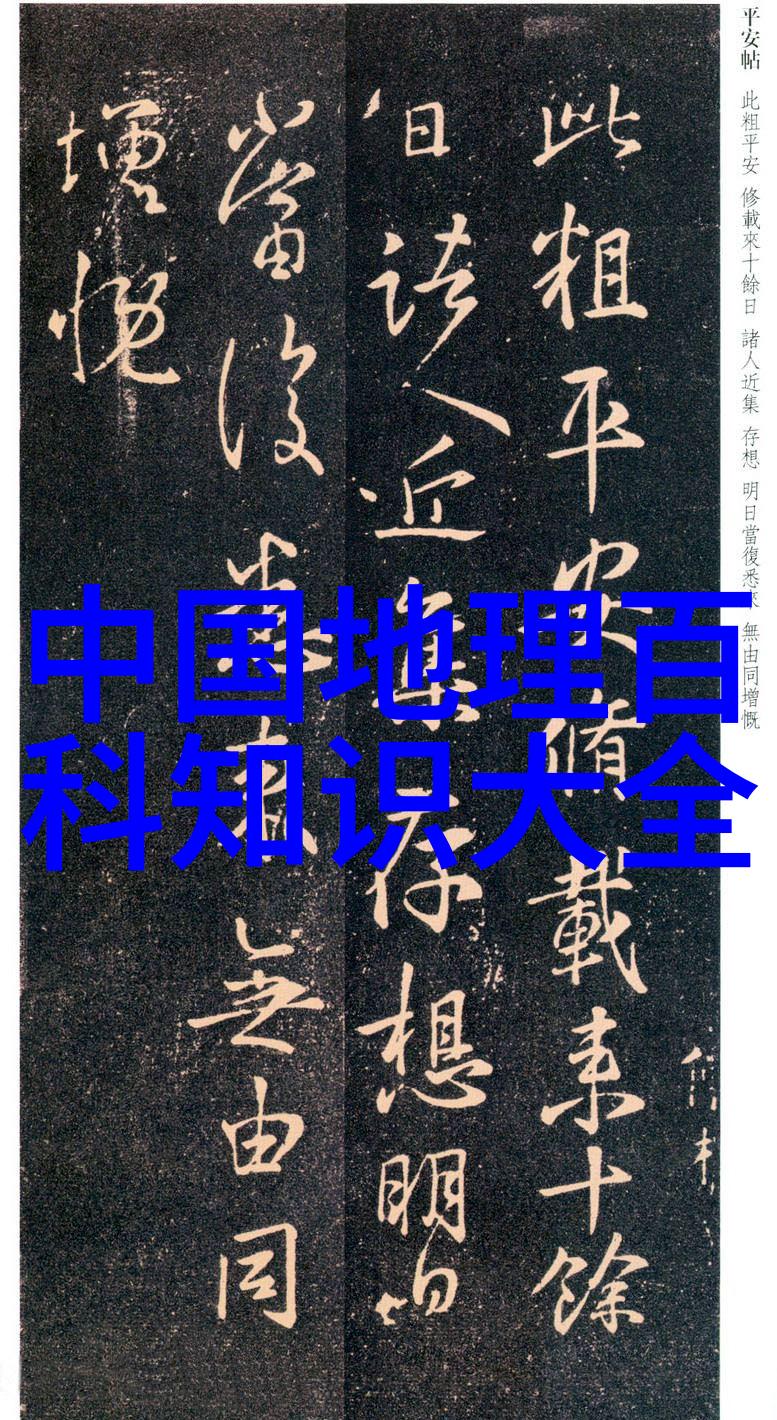 平安帖 此粗平安 修載來十餘日 諸人近集 存想 明日當復悉來 無由同增慨
此粗平安脩載来十餘
日諸人近集存想明日
當復悉来無由同
增慨
中国地理百
科知识大全